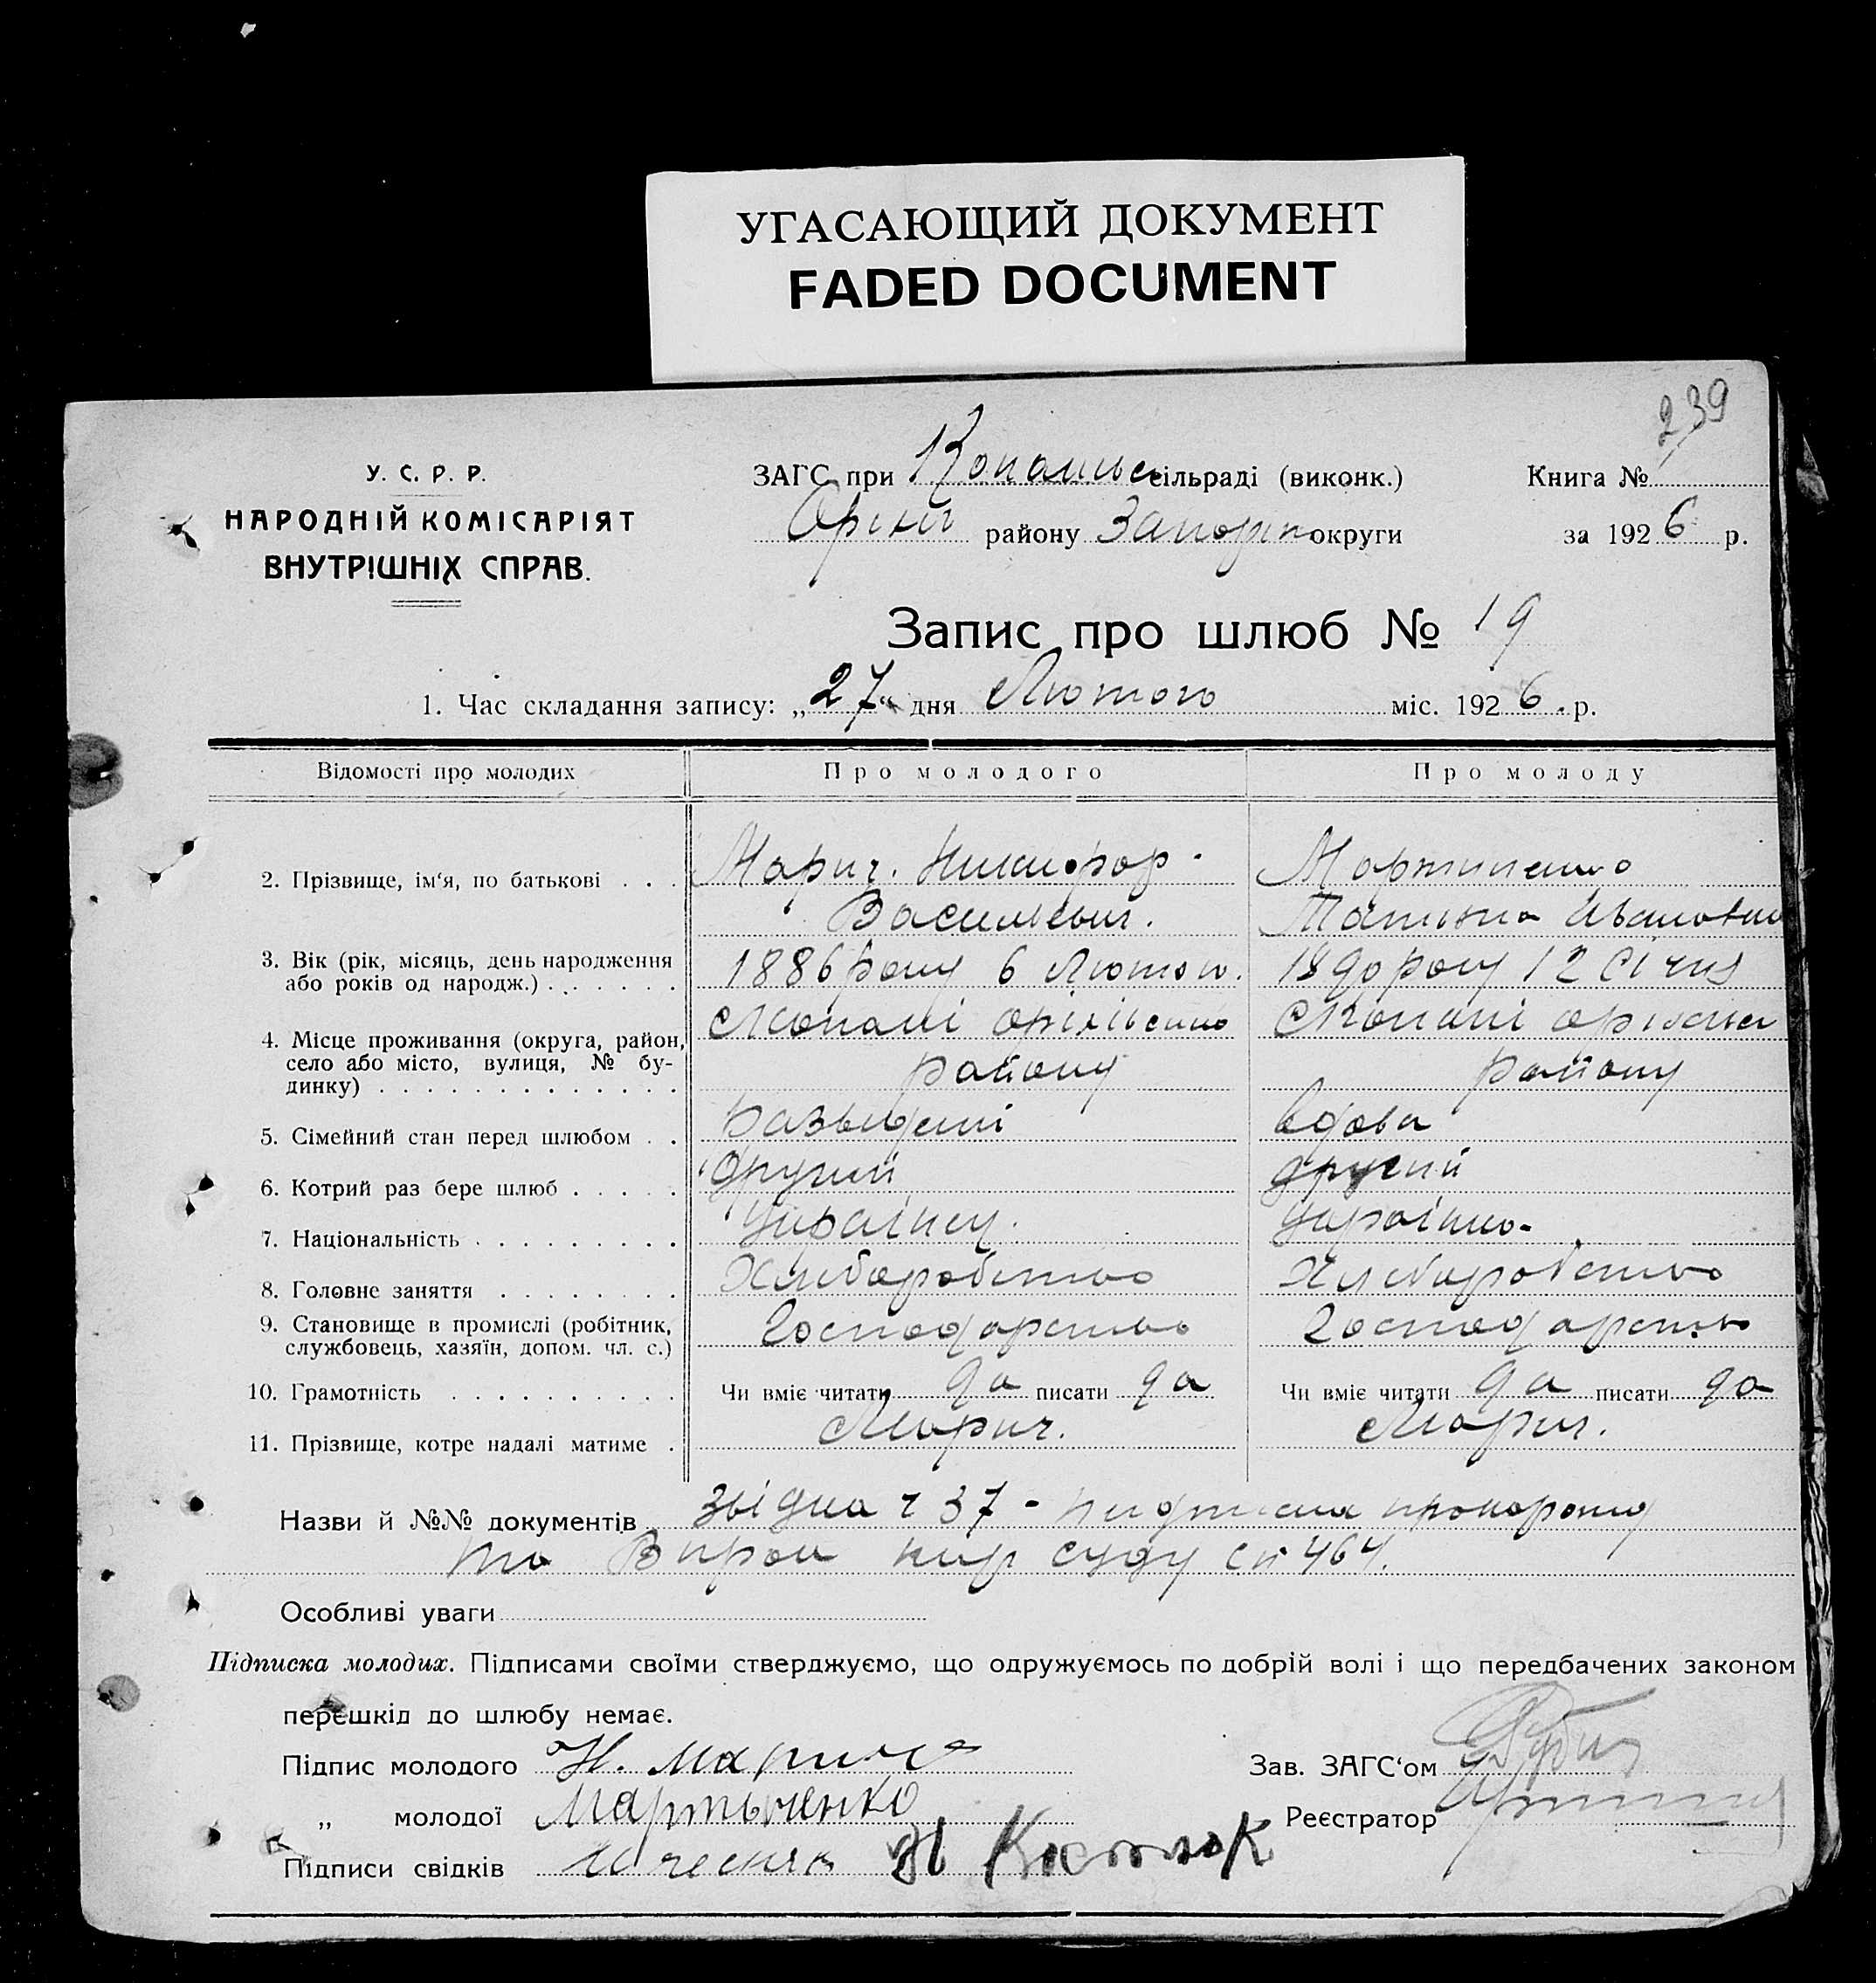 УГАСАЮЩИЙ ДОКУМЕНТ
FADED DOCUMENT
239
У. С. Р. Р.
НАРОДНІЙ КОМІСАРІЯТ
ВНУТРІШНІХ СПРАВ.
ЗАГС при Копанськ сільраді (виконк.)
Книга №
Оріхів району Запоріж округи
за 1926 р.
Запис про шлюб № 19
1. Час складання запису: „27“ дня Лютого міс. 1926 р.
Відомості про молодих
Про молодого
Про молоду
2. Прізвище, ім‘я, по батькові . . .
Марич. Никифор
Васильевич.
Мартиненко
Татьяна Ивановна
3. Вік (рік, місяць, день народження
або років од народж.) . . . . . .
1886 року 6 Лютого.
1890 року 12 Січня
4. Місце проживання (округа, район,
село або місто, вулиця, № бу-
динку) . . . . . . . . . . . . .
с Копані оріхівсько
району
с Копані
району
5. Сімейний стан перед шлюбом . .
вдова
6. Котрий раз бере шлюб . . . . .
другий
другий
7. Національність . . . . . . . . .
українец.
українка
8. Головне заняття . . . . . . . .
Хлеборобство
Хлеборобство
9. Становище в промислі (робітник,
службовець, хазяїн, допом. чл. с.)
Господарство
Господарство
10. Грамотність . . . . . . . . . .
Чи вміє читати да писати да
Чи вміє читати да писати да
11. Прізвище, котре надалі матиме .
Марич.
Марич.
Назви й №№ документів звідка ч 37 -
та суду 464.
Особливі уваги
Підписка молодих. Підписами своїми стверджуємо, що одружуємось по добрій волі і що передбачених законом
перешкід до шлюбу немає.
Підпис молодого Н. Марич
Зав. ЗАГС‘ом
„ молодої Мартыненко
Реєстратор
Підписи свідків Н Костюк